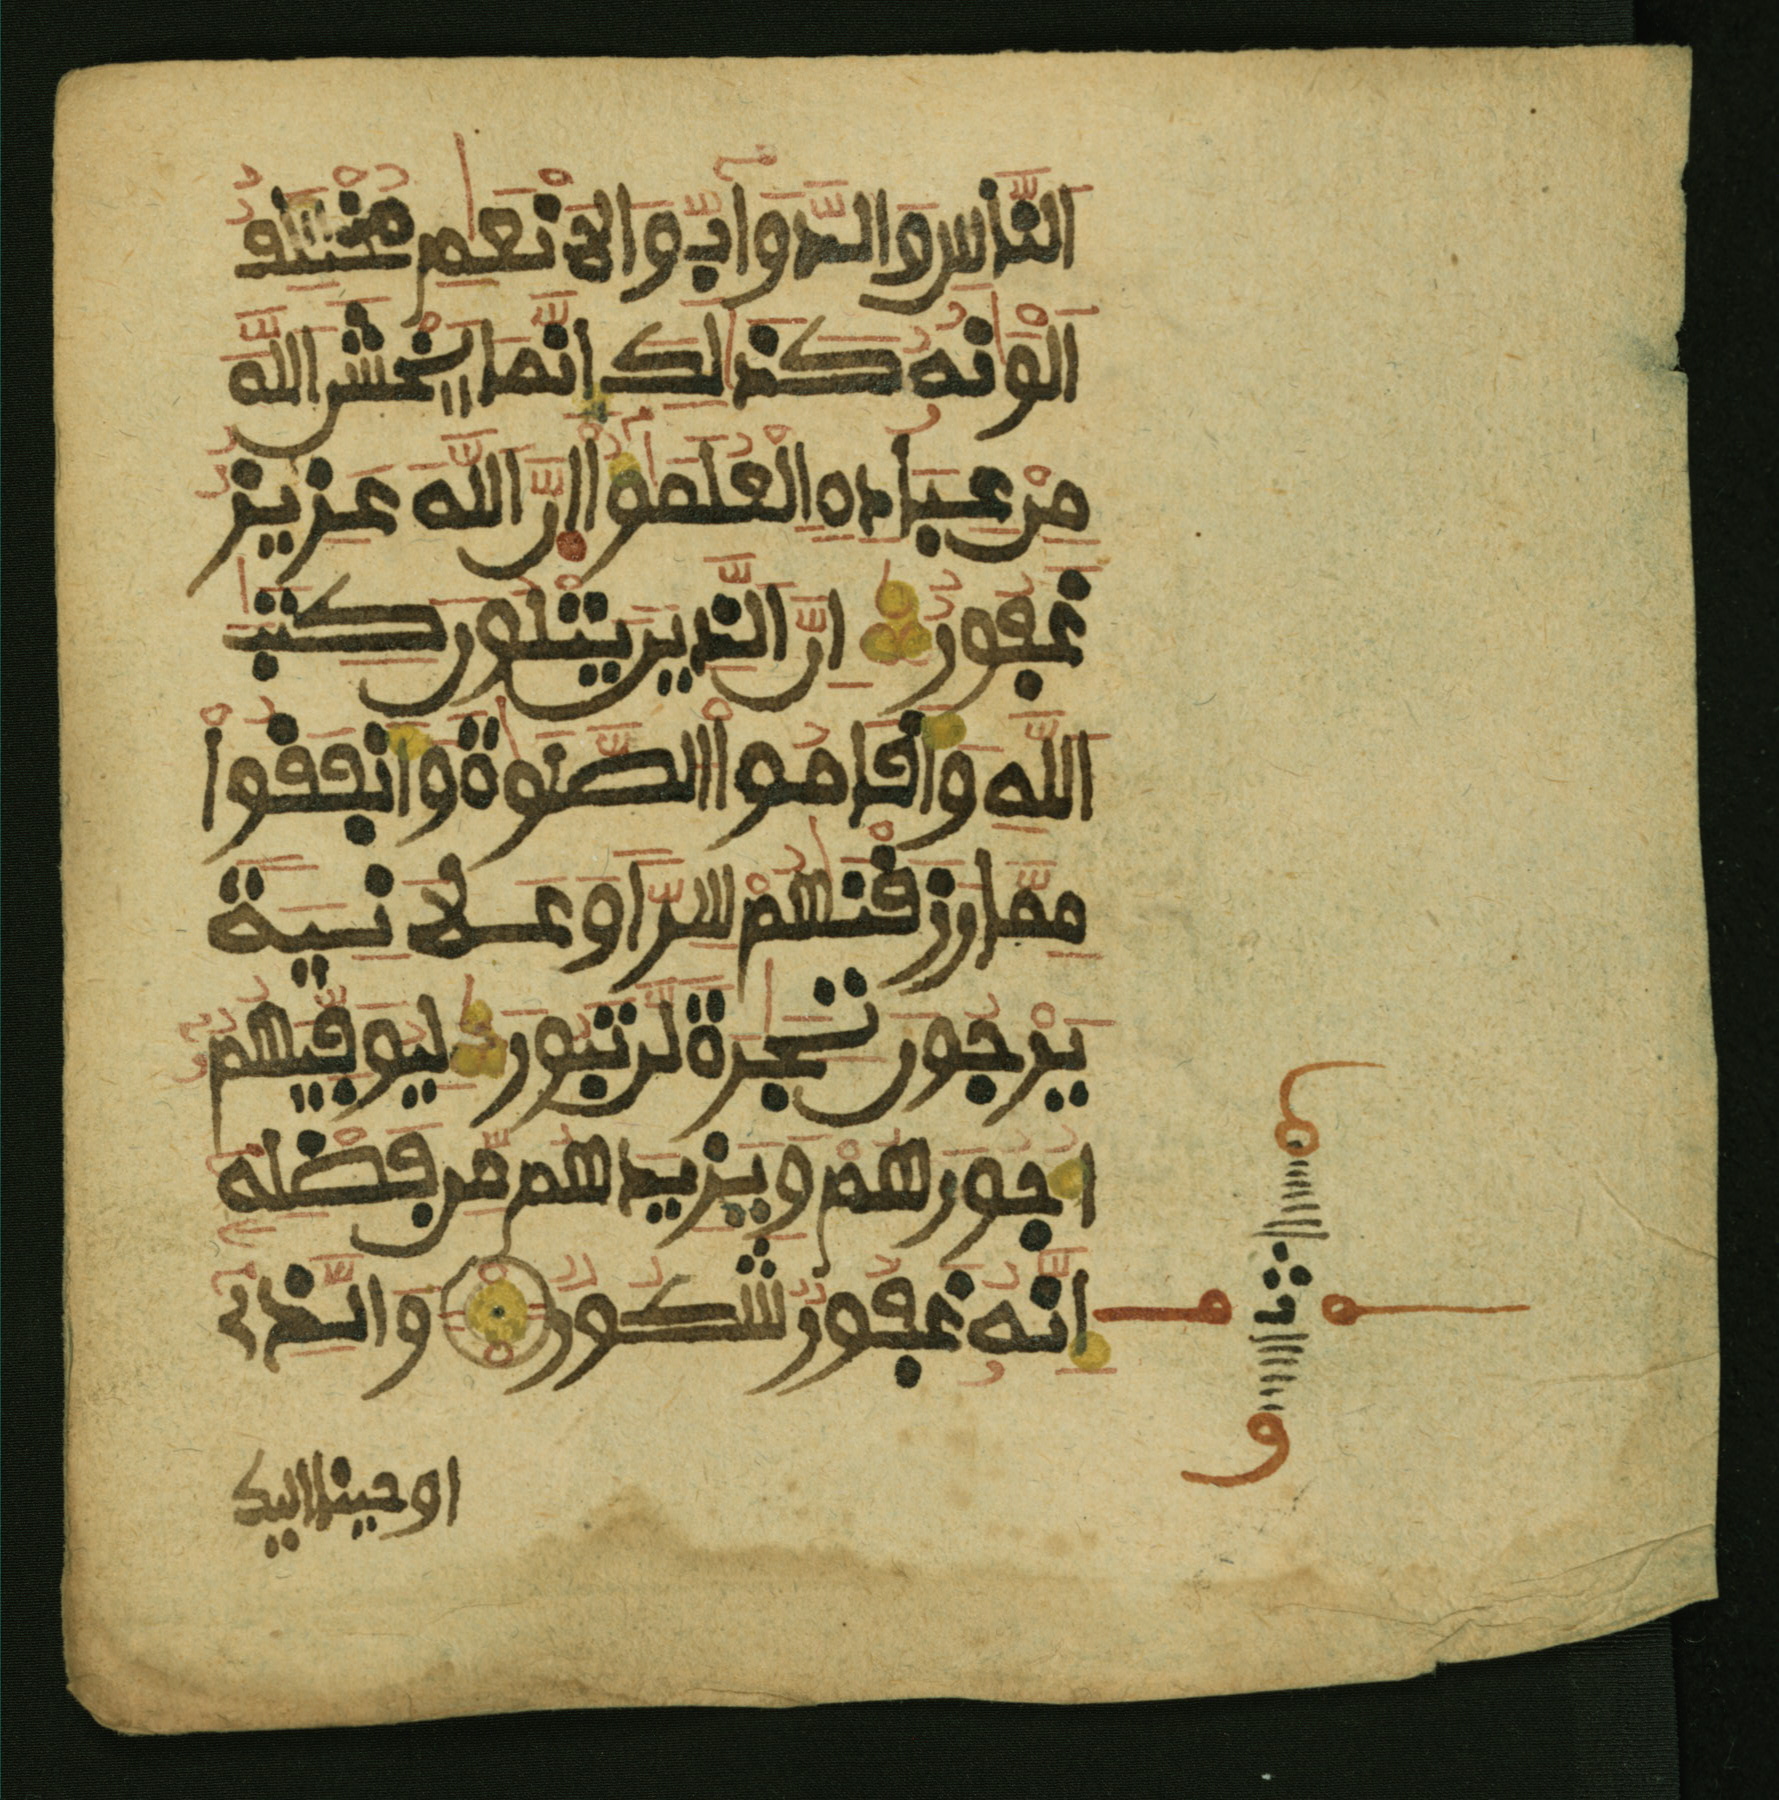 الناس والدواب والانعم مختلف
الونه كذلك انما يخشى الله
من عباده العلموا ان الله عزيز
غفور ان الذين يتلون كتب
الله واقاموا الصلوة وانفقوا
مما رزقنهم سرا وعلانية
يرجون تجرة لن تبور ليوفيهم
اجورهم ويزيدهم من فضله
انه غفور شكور والذى
اوحينا اليك